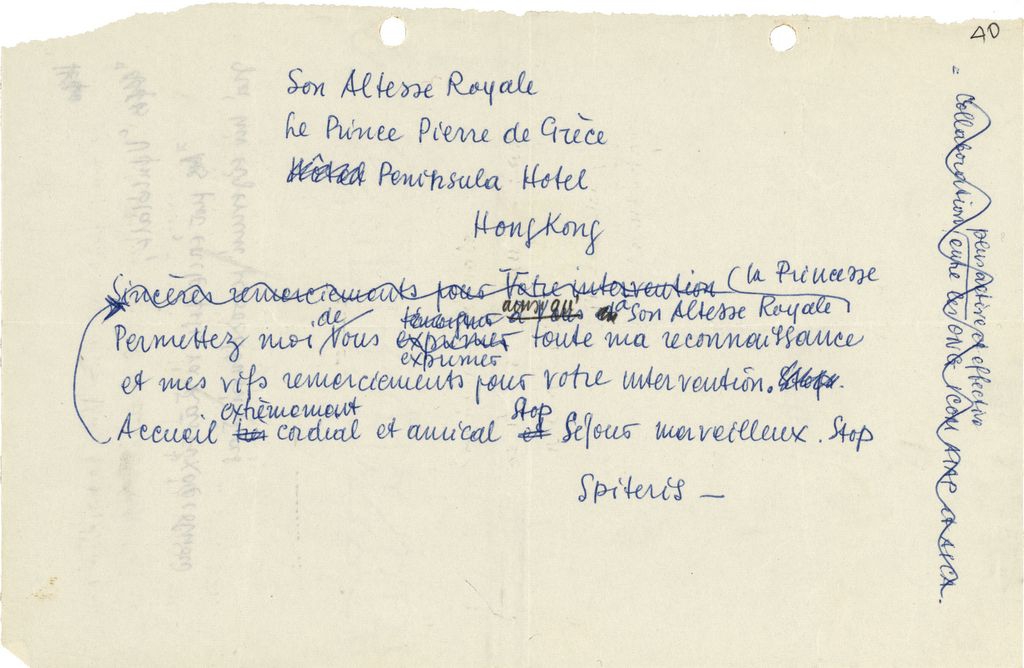 40
Son Altesse Royale
Le Prince Pierre de Grèce
Hôtel Peninsula Hotel
HongKong
Sincères remerciements pour Votre intervention (la Princesse
ainsi qu'à Son Altesse Royale)
Permettez moi de Vous exprimer toute ma reconnaissance
exprimer
et mes vifs remerciements pour votre intervention. Stop.
extrêmement Stop
Accueil très cordial et amical et Séjour merveilleux. Stop
Spiteris —
= Collaboration entre les ONG
plus active et effective